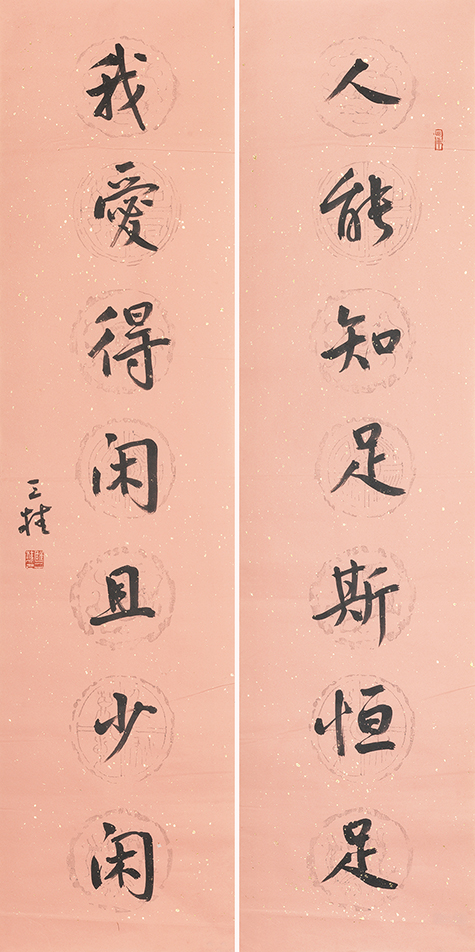 人能知足斯恒足
我爱得闲且少闲
三桂